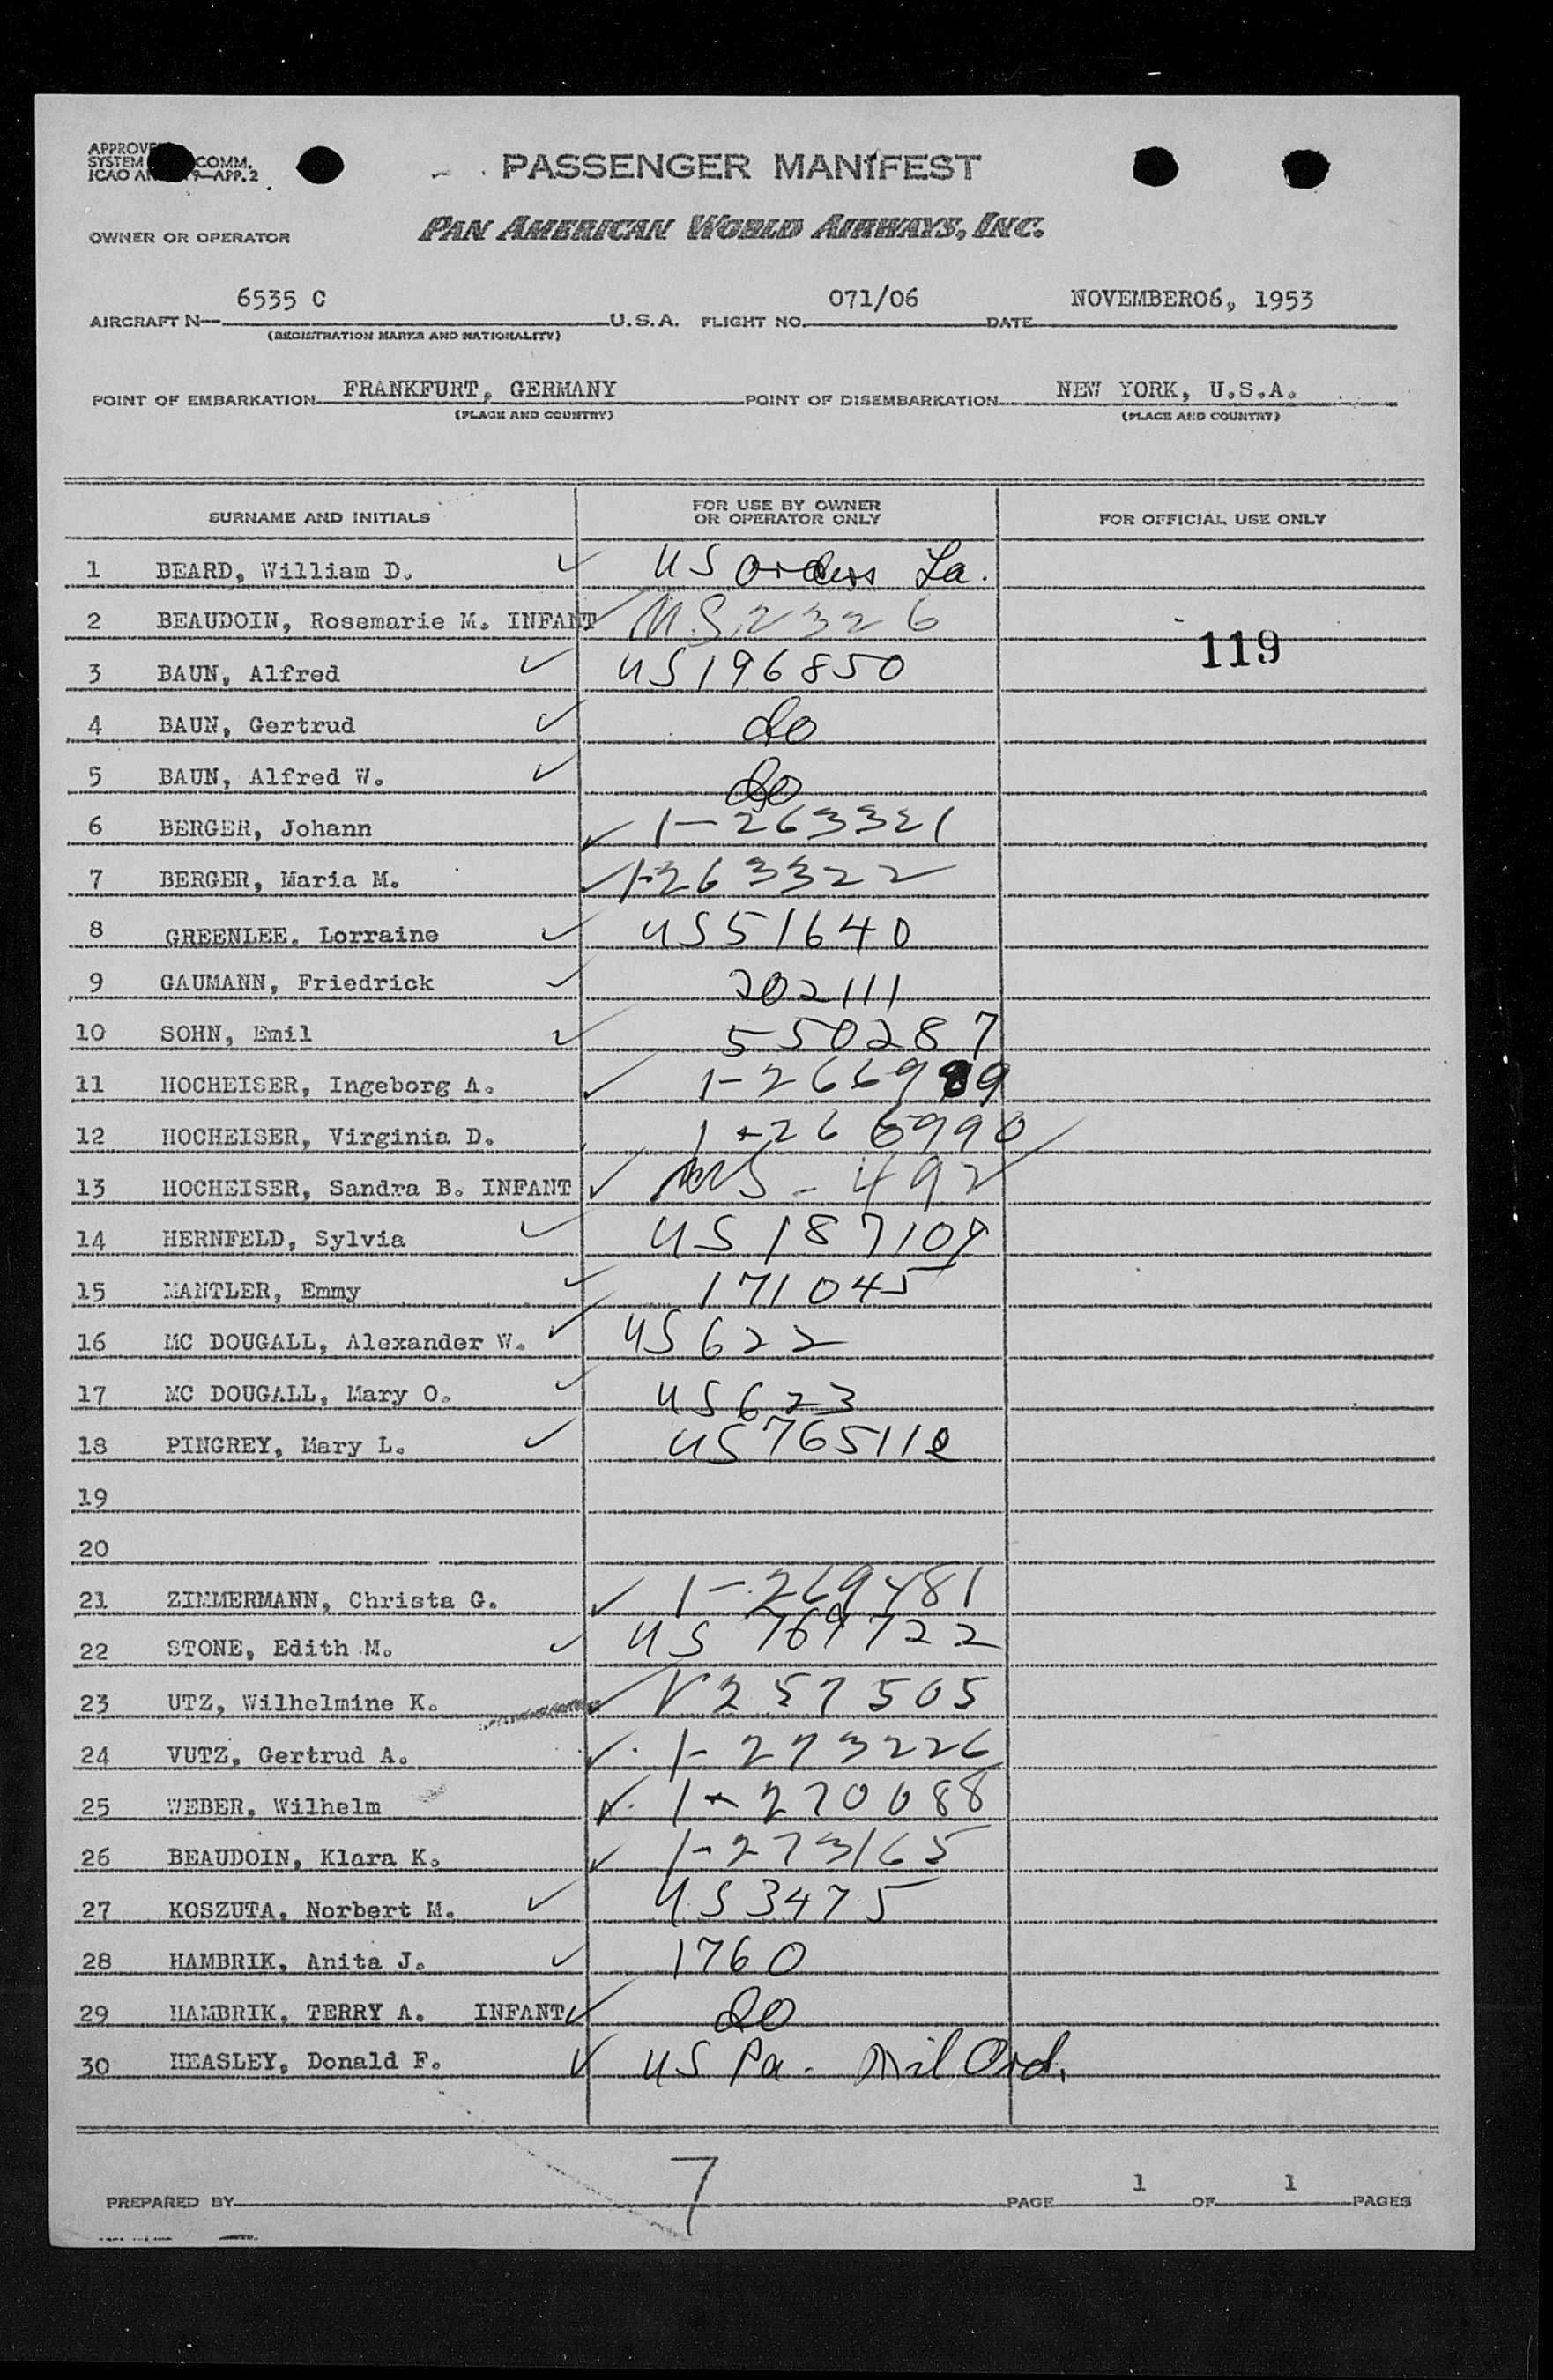 PASSENGER MANIFEST
OWNER OR OPERATOR PAN AMERICAN WORLD AIRWAYS, INC.
AIRCRAFT N 6535 C U.S.A. FLIGHT NO. 071/06 DATE NOVEMBER06, 1953
(REGISTRATION MARKS AND NATIONALITY)
POINT OF EMBARKATION FRANKFURT, GERMANY POINT OF DISEMBARKATION NEW YORK, U.S.A.
(PLACE AND COUNTRY) (PLACE AND COUNTRY)
SURNAME AND INITIALS FOR USE BY OWNER OR OPERATOR ONLY FOR OFFICIAL USE ONLY
1 BEARD, William D. ✓ US orders La.
2 BEAUDOIN, Rosemarie M. INFANT ✓ 2326
119
3 BAUN, Alfred ✓ US196850
4 BAUN, Gertrud ✓ do
5 BAUN, Alfred W. ✓ do
6 BERGER, Johann ✓ 1-263321
7 BERGER, Maria M. ✓ 1-263322
8 GREENLEE. Lorraine ✓ US51640
9 GAUMANN, Friedrick ✓ 202111
10 SOHN, Emil ✓ 550287
11 HOCHEISER, Ingeborg A. ✓ 1-266989
12 HOCHEISER, Virginia D. 1-266990
13 HOCHEISER, Sandra B. INFANT ✓ 492
14 HERNFELD, Sylvia ✓ US 187109
15 MANTLER, Emmy ✓ 171045
16 MC DOUGALL, Alexander W. ✓ US622
17 MC DOUGALL, Mary O. ✓ US623
18 PINGREY, Mary L. ✓
19
20
21 ZIMMERMANN, Christa G. ✓ 1-269481
22 STONE, Edith M. ✓ US
23 UTZ, Wilhelmine K. ✓ V257505
24 VUTZ, Gertrud A. ✓ 1-273226
25 WEBER, Wilhelm ✓ 1-270688
26 BEAUDOIN, Klara K. ✓ 1-273165
27 KOSZUTA, Norbert M. ✓ US3475
28 HAMBRIK, Anita J. ✓ 1760
29 HAMBRIK, TERRY A. INFANT ✓ do
30 HEASLEY, Donald F. ✓ US Pa. Mil Ord.
7
PREPARED BY PAGE 1 OF 1 PAGES